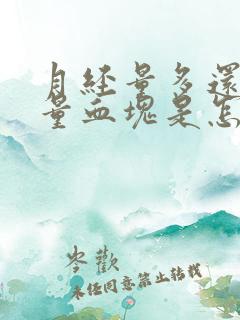 月经量多還
量血塊是怎
岑歡
未經同意禁止轉載